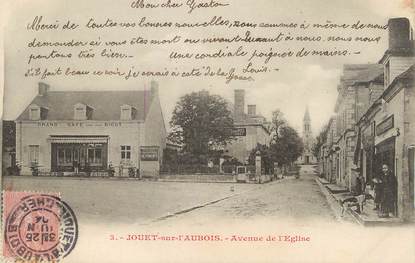 Mon cher Gaston
Merci de toutes vos bonnes nouvelles, nous sommes à même de nous
demander si vous êtes mort ou vivant quant à nous, nous nous
portons très bien. Une cordiale poignée de mains.
S'il fait beau ce soir je serais à côté de la Louis
GRAND CAFÉ RIGUT
3. - JOUET-sur-l'AUBOIS. - Avenue de l'Eglise
25
JUIN
04